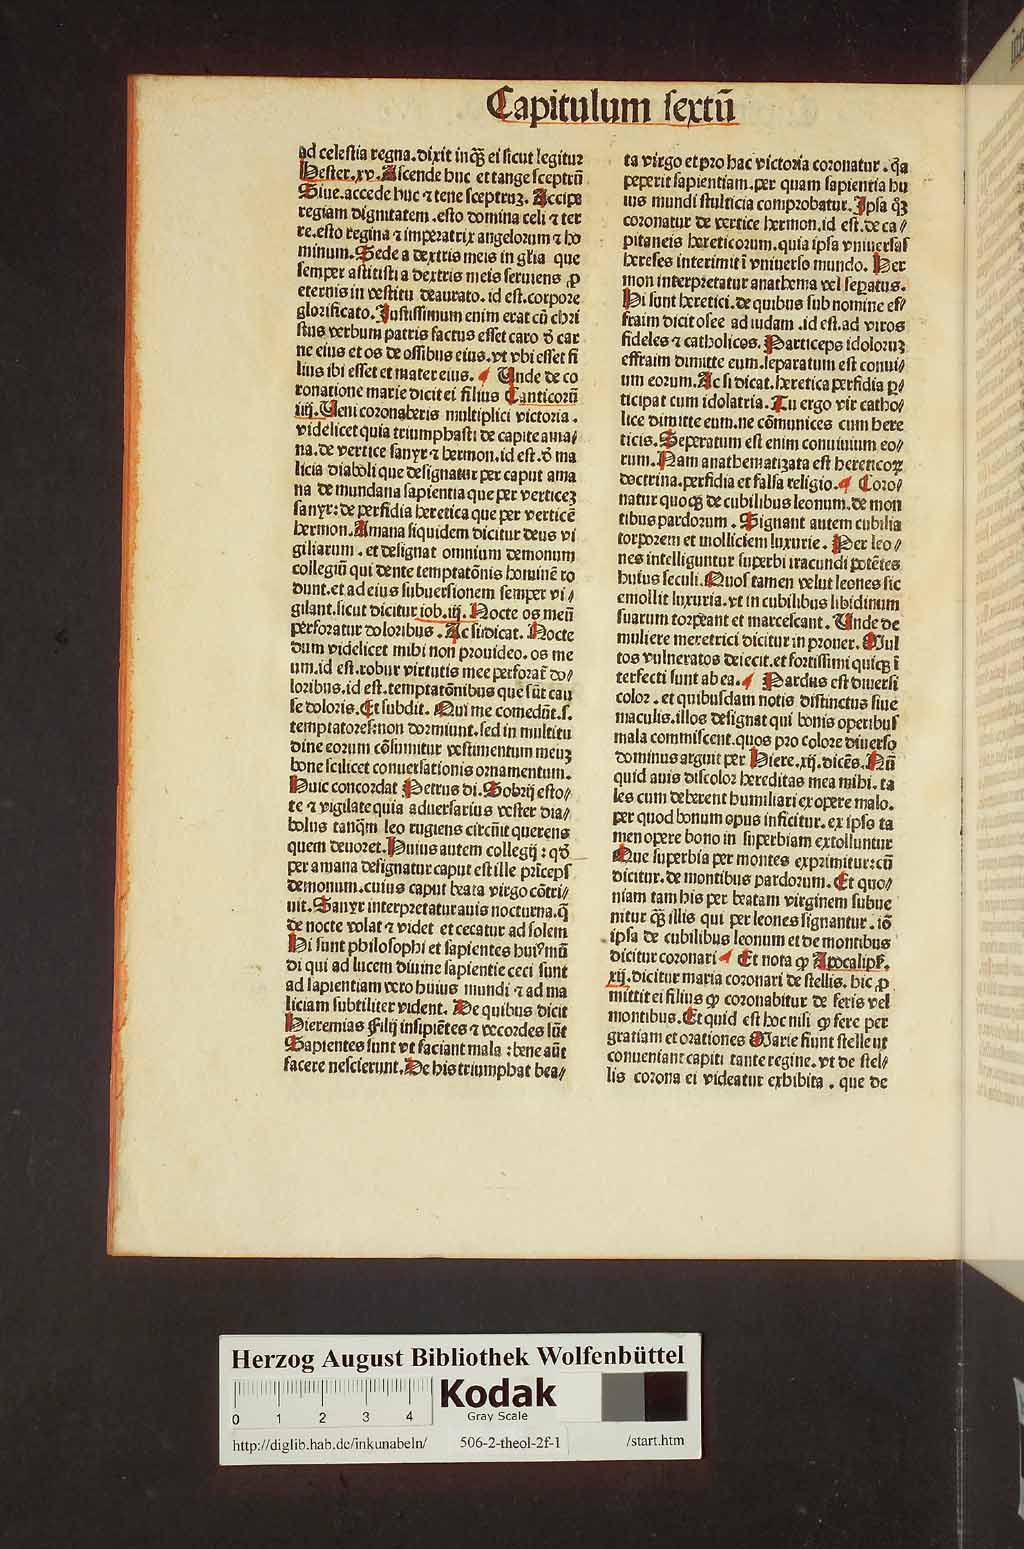 Capitulum sextū
ad celestia regna.dixit inqȝ ei sicut legitur
Hester.xv.Ascende huc et tange sceptrū
Siue.accede huc ⁊ tene sceptruȝ. Accipe
regiam dignitatem.esto domina celi ⁊ ter
re.esto regina ⁊ imperatrix angelorum ⁊ ho
minum.Sede a dextris meis in gl̄ia que
semper astitisti a dextris meis seruiens ꝓ
eternis in vestitu deaurato.id est.corpore
glorificato.Iustissimum enim erat cū chri
stus verbum patris factus esset caro d̄ car
ne eius et os de ossibus eius.vt vbi esset fi
lius ibi esset et mater eius. Unde de co
ronatione marie dicit ei filius Canticorū
iiij.Ueni coronaberis multiplici victoria.
videlicet quia triumphasti de capite ama/
na.de vertice sanyr ⁊ hermon.id est.d̄ ma
licia diaboli que designatur per caput ama
na de mundana sapientia que per verticeȝ
sanyr:de perfidia heretica que per verticē
hermon.Amana siquidem dicitur deus vi
giliarum.et designat omnium demonum
collegiū qui dente temptatōnis hominē ro
dunt.et ad eius subuersionem semper vi/
gilant.sicut dicitur iob.iij. Nocte os meū
perforatur doloribus. Ac si dicat. Nocte
dum videlicet mihi non prouideo.os me
um.id est.robur virtutis mee perforat̄ do/
loribus.id est.temptatōnibus que sūt cau
se doloris.Et subdit. Qui me comedūt.s.
temptatores:non dormiunt.sed in multitu
dine eorum cōsumitur vestimentum meuȝ
bone scilicet conuersationis ornamentum.
Huic concordat Petrus di.Sobrij esto/
te ⁊ vigilate quia aduersarius vester dia/
bolus tanq̄m leo rugiens circūit querens
quem deuoret.Huius autem collegij:qd̄
per amana designatur caput est ille prīceps
demonum.cuius caput beata virgo cōtri/
uit.Sanyr interpretatur auis nocturna.q̄
de nocte volat ⁊ videt et cecatur ad solem
Hi sunt philosophi et sapientes huiꝰ mū
di qui ad lucem diuine sapientie ceci sunt
ad sapientiam vero huius mundi ⁊ ad ma
liciam subtiliter vident. De quibus dicit
Hieremias Filij insipiētes ⁊ vecordes sūt
Sapientes sunt vt faciant mala:bene aūt
facere nescierunt.De his triumphat bea/
ta virgo et pro hac victoria coronatur.q̄a
peperit sapientiam.per quam sapientia hu
ius mundi stulticia comprobatur.Ipsa q̄ȝ
coronatur de vertice hermon.id est.de ca/
pitaneis hereticorum.quia ipsa vniuersas
hereses interimit ī vniuerso mundo. Her
mon interpretatur anathema vel sepatus.
Hi sunt heretici.de quibus sub nomine ef/
fraim dicit osee ad iudam.id est.ad viros
fideles ⁊ catholicos.Particeps idoloruȝ
effraim dimitte eum.separatum est conui/
um eorum.Ac si dicat.heretica perfidia ꝑ/
ticipat cum idolatria.Tu ergo vir catho/
lice dimitte eum.ne cōmunices cum here
ticis.Seperatum est enim conuiuium eo/
rum.Nam anathematizata est hereticoꝝ
doctrina.perfidia et falsa religio. Coro/
natur quoqȝ de cubilibus leonum.de mon
tibus pardorum. Signant autem cubilia
torporem et molliciem luxurie. Per leo/
nes intelliguntur superbi iracundi potētes
huius seculi.Quos tamen velut leones sic
emollit luxuria.vt in cubilibus libidinum
suarum torpeant et marcescant. Unde de
muliere meretrici dicitur in prouer. Mul
tos vulneratos deiecit.et fortissimi quiqȝ ī
terfecti sunt ab ea. Pardus est diuersi
color.et quibusdam notis distinctus siue
maculis.illos designat qui bonis operibus
mala commiscent.quos pro colore diuerso
dominus arguit per Hiere.xij.dicēs.Nū
quid auis discolor hereditas mea mihi.ta
les cum deberent humiliari ex opere malo.
per quod bonum opus inficitur.ex ipso ta
men opere bono in superbiam extolluntur
Que superbia per montes exprimitur:cū
dicitur.de montibus pardorum.Et quo/
niam tam his per beatam virginem subue
nitur qȝ illis qui per leones signantur.iō
ipsa de cubilibus leonum et de montibus
dicitur coronari Et nota ꝙ Apocalips̄.
xij.dicitur maria coronari de stellis.hic ꝓ
mittit ei filius ꝙ coronabitur de feris vel
montibus.Et quid est hoc nisi ꝙ fere per
gratiam et orationes Marie fiunt stelle ut
conueniant capiti tante regine.vt de stel/
lis corona ei videatur exhibita.que de
Herzog August Bibliothek Wolfenbüttel
0 1 2 3 4
Kodak
Gray Scale
http://diglib.hab.de/inkunabeln/ 506-2-theol-2f-1 /start.htm